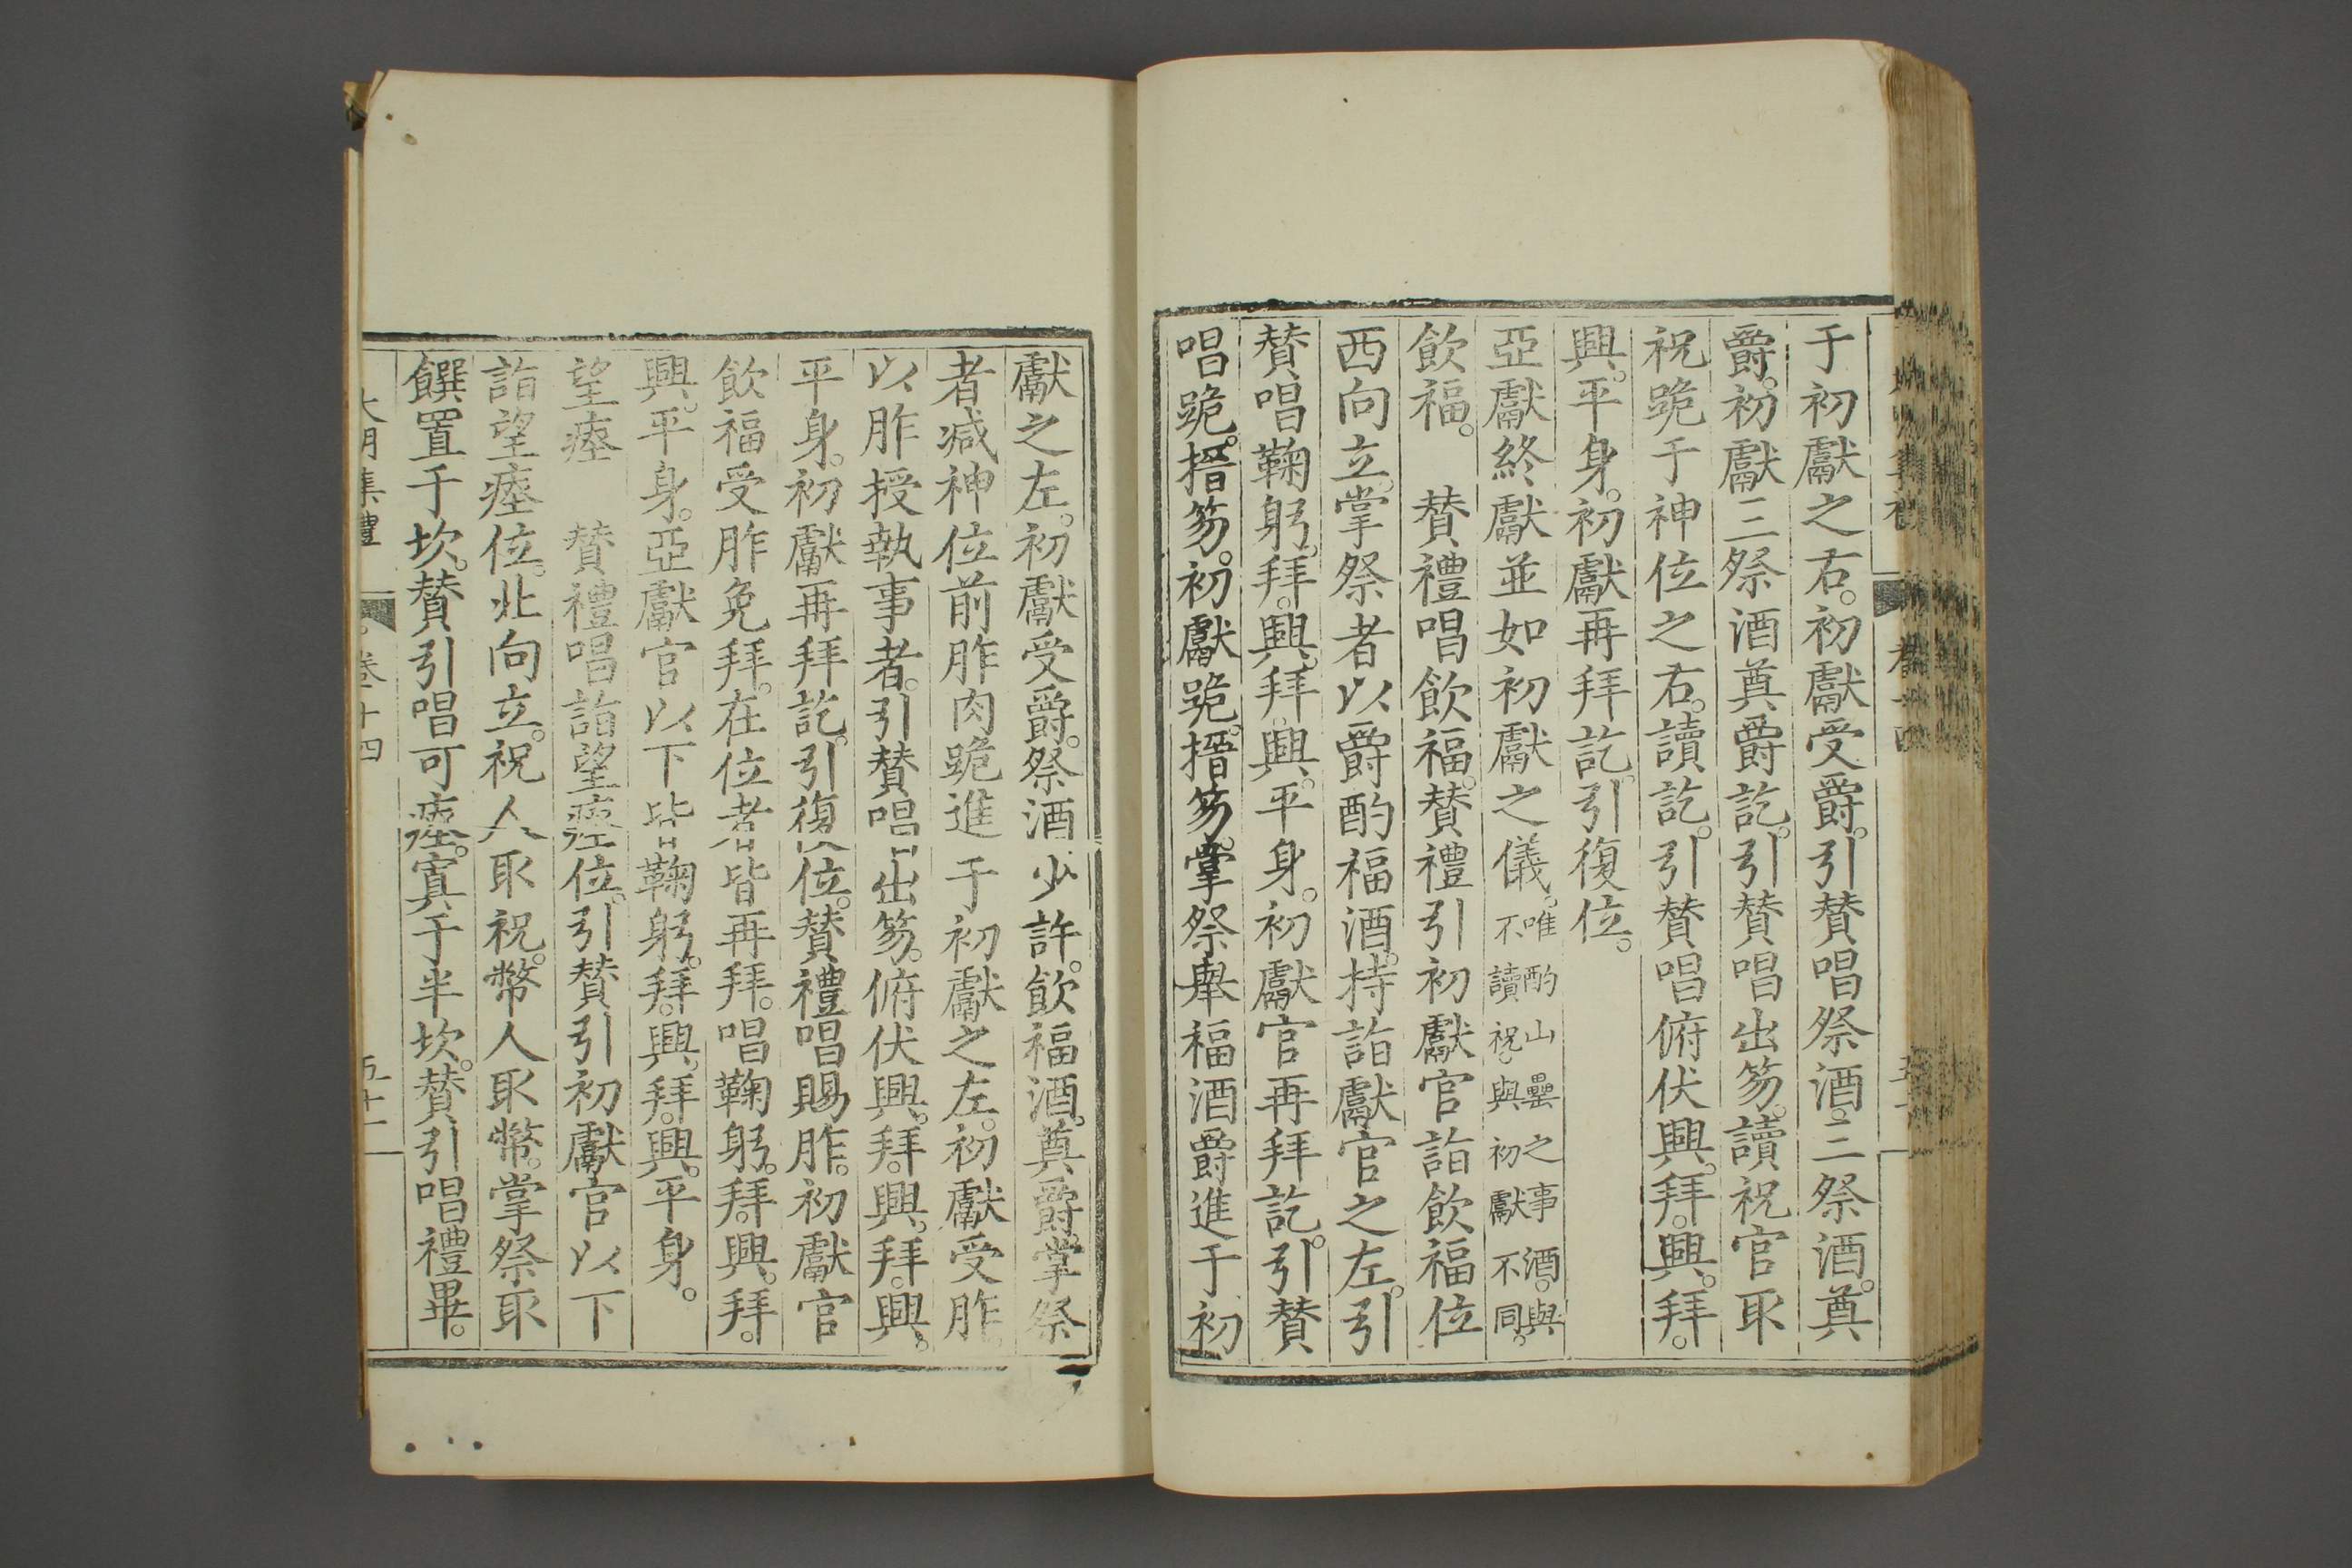 于初獻之右。初獻受爵。引賛唱祭酒。三祭酒。奠
爵。初獻三祭酒奠爵訖。引賛唱出笏。讀祝官取
祝跪于神位之右。讀訖。引賛唱俯伏興。拜。興。拜。
興。平身。初獻再拜訖。引復位。
亞獻終獻並如初獻之儀。唯酌山罍之事酒。與不讀祝。與初獻不同。
飲福。 賛禮唱飲福。賛禮引初獻官詣飲福位
西向立。掌祭者以爵酌福酒。持詣獻官之左。引
賛唱鞠躬。拜。興。拜。興。平身。初獻官再拜訖。引賛
唱跪。搢笏。初獻跪。搢笏。掌祭舉福酒爵進于初
獻之左。初獻受爵。祭酒少許。飲福酒。奠爵。掌祭
者減神位前胙肉跪進于初獻之左。初獻受胙。
以胙授執事者。引賛唱出笏。俯伏興。拜。興。拜。興。
平身。初獻再拜訖。引復位。賛禮唱賜胙。初獻官
飲福受胙免拜。在位者皆再拜。唱鞠躬。拜。興。拜。
興。平身。亞獻官以下皆鞠躬。拜。興。拜。興。平身。
望瘞 賛禮唱詣望瘞位。引賛引初獻官以下
詣望瘞位。北向立。祝人取祝。幣人取幣。掌祭取
饌置于坎。賛引唱可瘞。寘于半坎。賛引唱禮畢。
大明集禮 卷十四 五十二